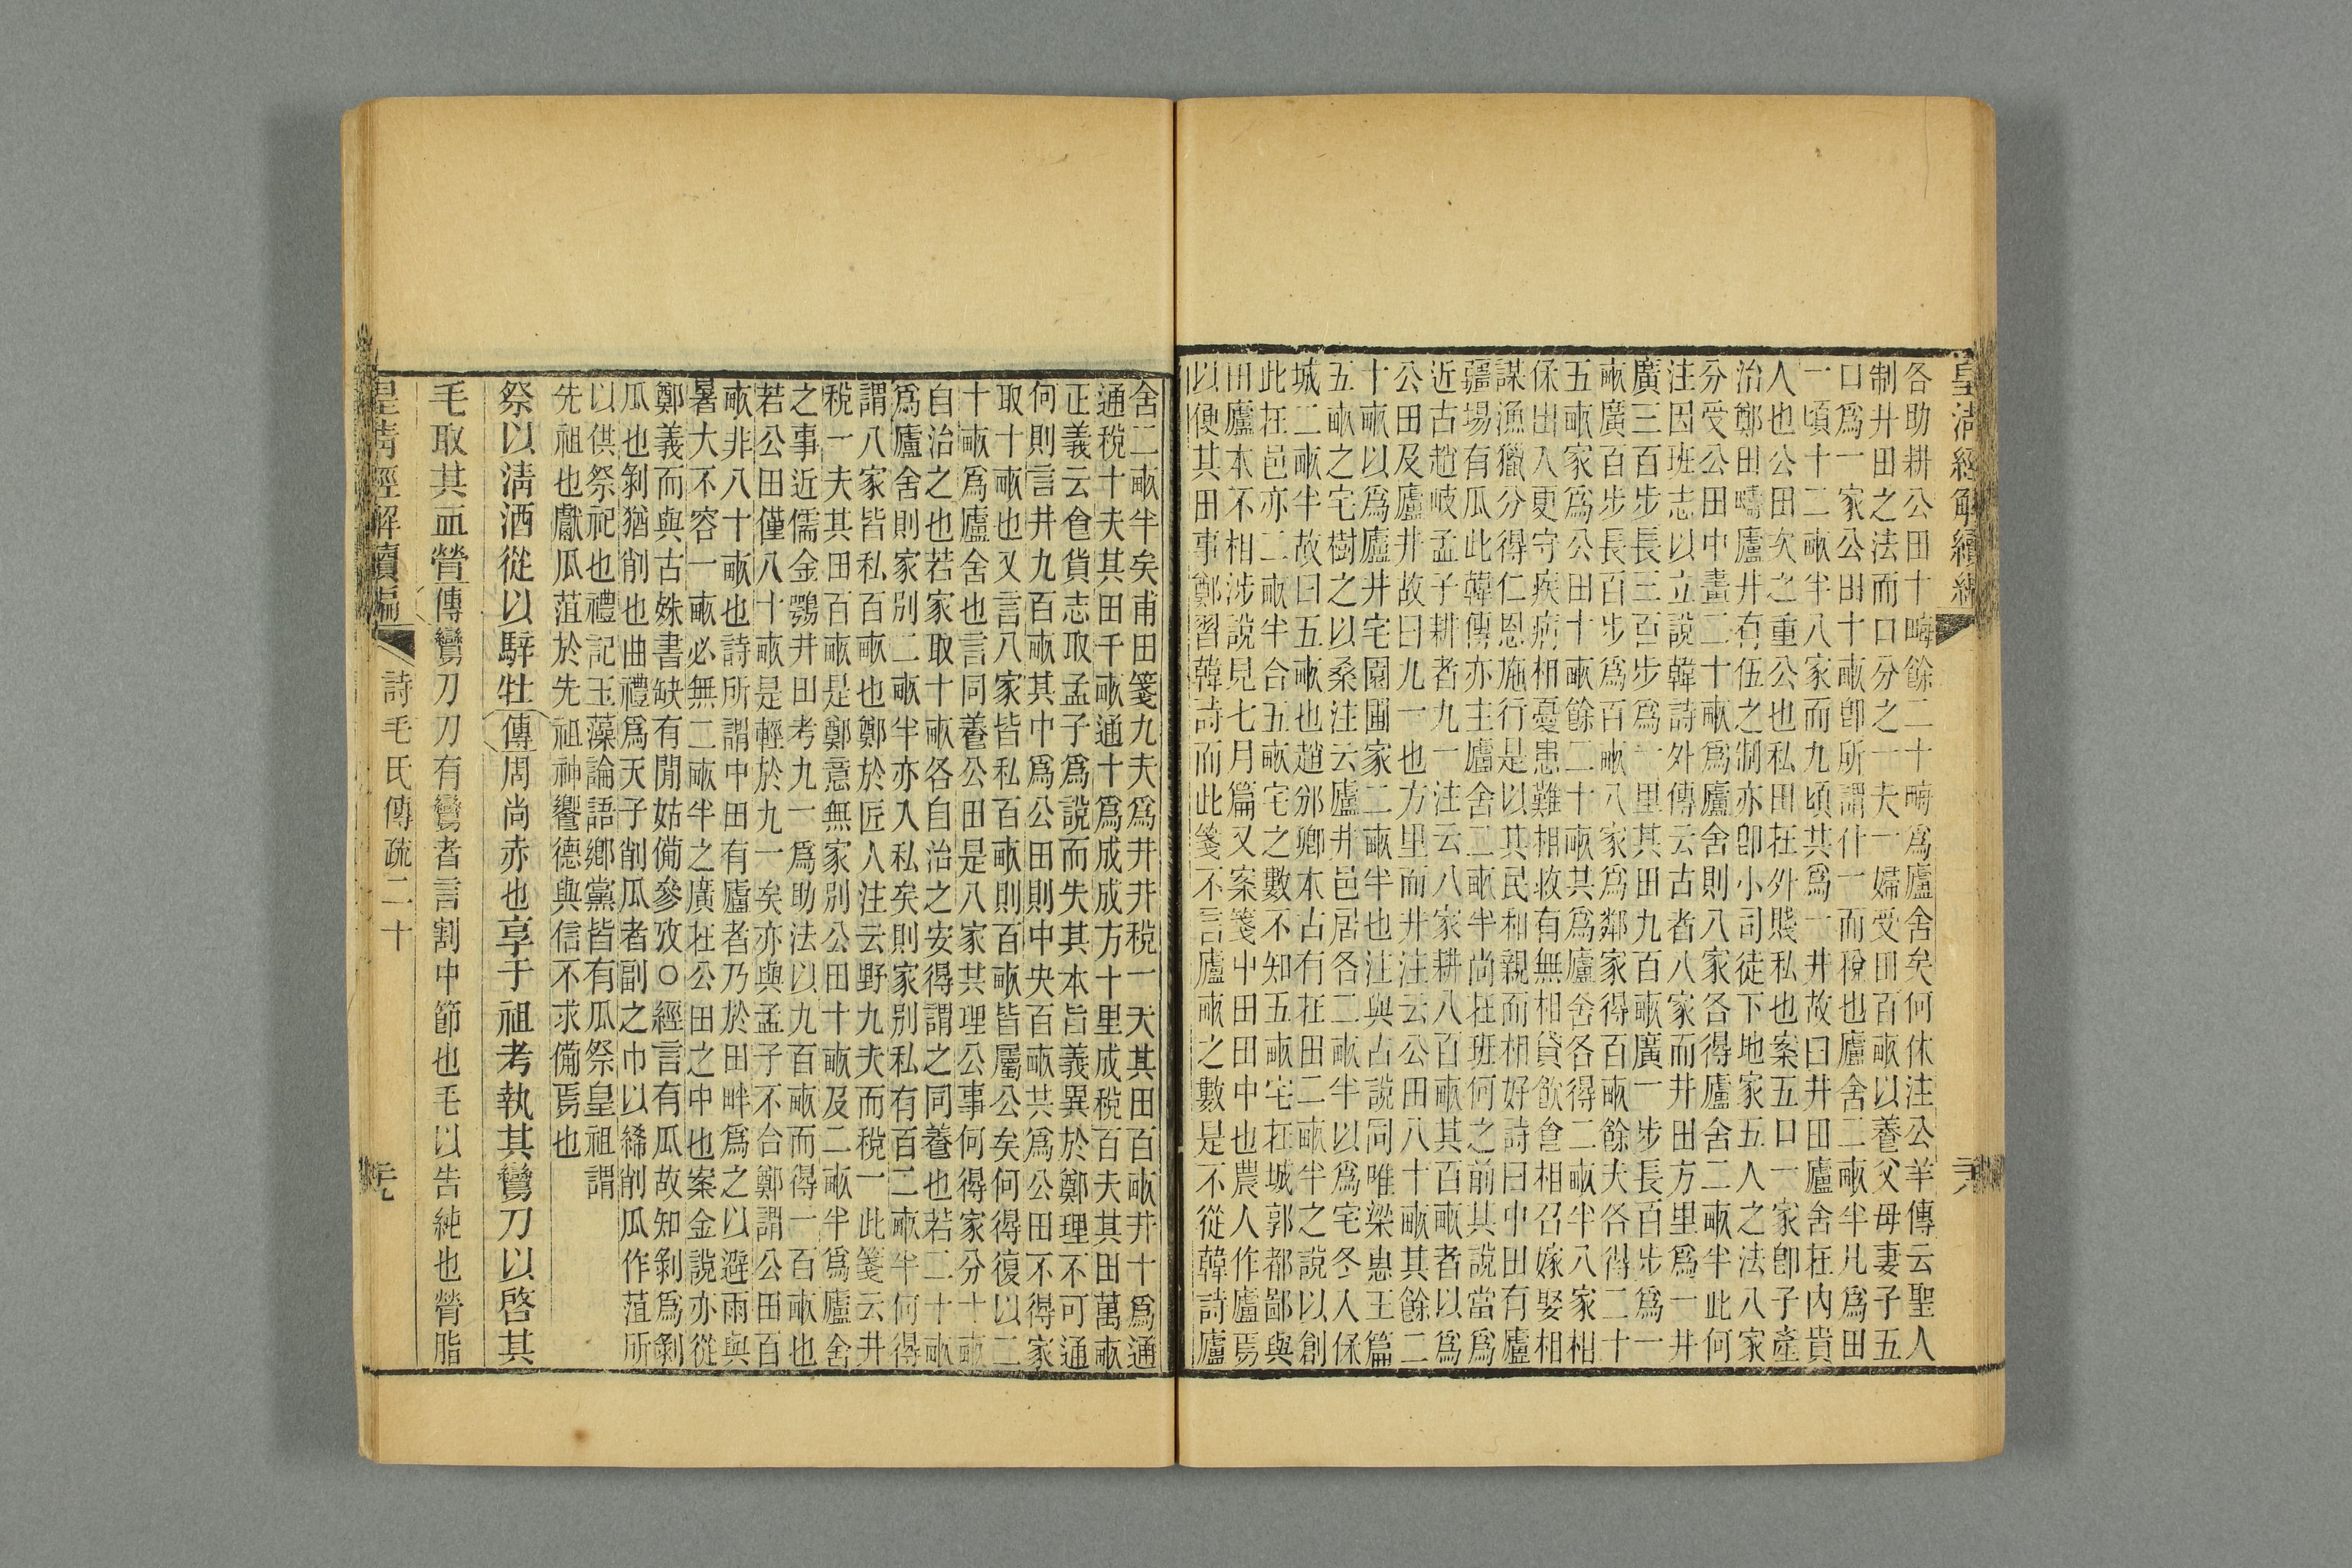 皇清經解續編
六
各助耕公田十畮餘二十畮爲廬舍矣何休注公羊傳云聖人
制井田之法而口分之一夫一婦受田百畝以養父母妻子五
口爲一家公田十畝卽所謂什一而稅也廬舍二畝半凡爲田
一頃十二畝半八家而九頃共爲一井故曰井田廬舍在內貴
人也公田次之重公也私田在外賤私也案五口一家卽子產
治鄭田疇廬井有伍之制亦卽小司徒下地家五人之法八家
分受公田中畫二十畝爲廬舍則八家各得廬舍二畝半此何
注因班志以立說韓詩外傳云古者八家而井田方里爲一井
廣三百步長三百步爲一里其田九百畝廣一步長百步爲一
畝廣百步長百步爲百畝八家爲鄰家得百畝餘夫各得二十
五畝家爲公田十畝餘二十畝共爲廬舍各得二畝半八家相
保出入更守疾病相憂患難相救有無相貸飲食相召嫁娶相
謀漁獵分得仁恩施行是以其民和親而相好詩曰中田有廬
疆場有瓜此韓傳亦主廬舍二畝半尚在班何之前其說當爲
近古趙岐孟子耕者九一注云八家耕八百畝其百畝者以爲
公田及廬井故曰九一也方里而井注云公田八十畝其餘二
十畝以爲廬井宅園圃家二畝半也注與古說同唯梁惠王篇
五畝之宅樹之以桑注云廬井邑居各二畝半以爲宅冬入保
城二畝半故曰五畝也趙邠卿本古有在田二畝半之說以創
此在邑亦二畝半合五畝宅之數不知五畝宅在城郭都鄙與
田廬本不相涉說見七月篇又案箋中田田中也農人作廬焉
以便其田事鄭習韓詩而此箋不言廬畝之數是不從韓詩廬
舍二畝半矣甫田箋九夫爲井井稅一夫其田百畝井十爲通
通稅十夫其田千畝通十爲成成方十里成稅百夫其田萬畝
正義云食貨志取孟子爲說而失其本旨義異於鄭理不可通
何則言井九百畝其中爲公田則中央百畝共爲公田不得家
取十畝也又言八家皆私百畝則百畝皆屬公矣何得復以二
十畝爲廬舍也言同養公田是八家共理公事何得家分十畝
自治之也若家取十畝各自治之安得謂之同養也若二十畝
爲廬舍則家別二畝半亦入私矣則家別私有百二畝半何得
謂八家皆私百畝也鄭於匠人注云野九夫而稅一此箋云井
稅一夫其田百畝是鄭意無家別公田十畝及二畝半爲廬舍
之事近儒金鶚井田考九一爲助法以九百畝而得一百畝也
若公田僅八十畝是輕於九一矣亦與孟子不合鄭謂公田百
畝非八十畝也詩所謂中田有廬者乃於田畔爲之以避雨與
暑大不容一畝必無二畝半之廣在公田之中也案金說亦從
鄭義而與古姝書缺有閒姑備參攷○經言有瓜故知剝爲剝
瓜也剝猶削也曲禮爲天子削瓜者副之巾以絺削瓜作菹所
以供祭祀也禮記玉藻論語鄉黨皆有瓜祭皇祖謂
先祖也獻瓜菹於先祖神饗德與信不求備焉也
祭以淸酒從以騂牡傳周尚赤也享于祖考執其鸞刀以啓其
毛取其血膋傳鸞刀刀有鸞者言割中節也毛以告純也膋脂
皇淸經解續編
詩毛氏傳疏二十